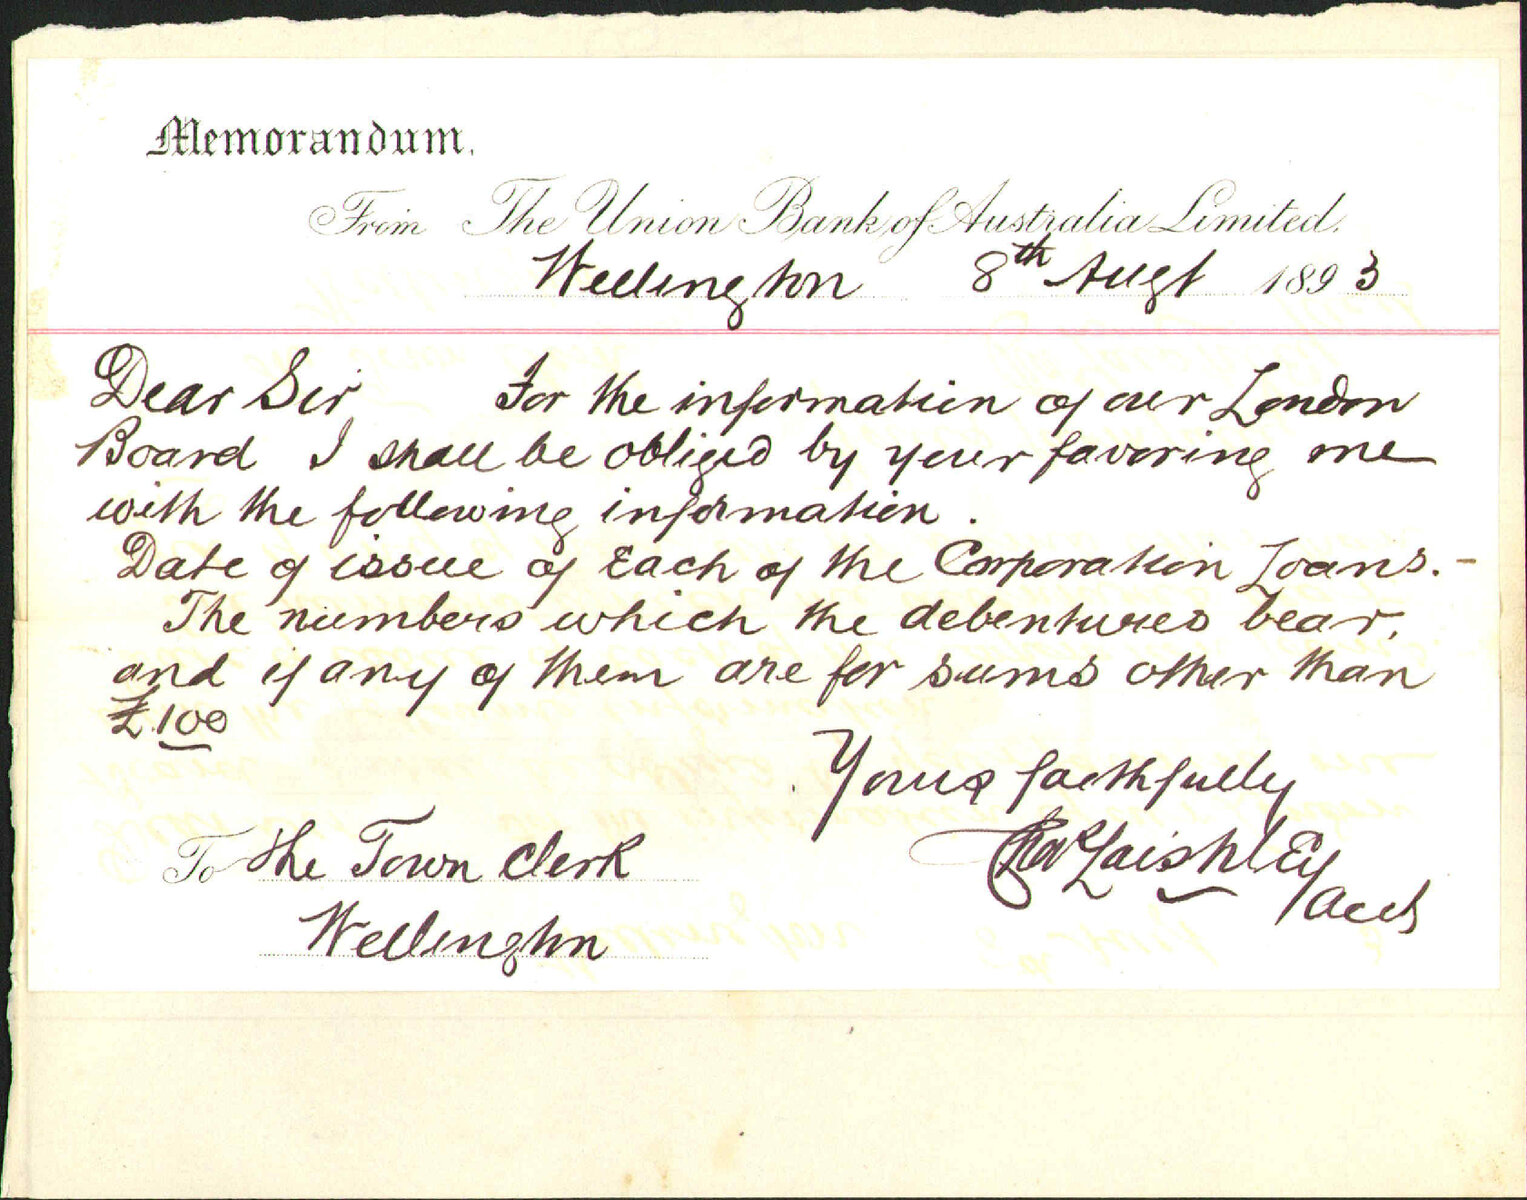 Memorandum.
From The Union Bank of Australia Limited.
Wellington 8th Augt 1893
Dear Sir For the information of our London
Board I shall be obliged by your favoring me
with the following information.
Date of issue of Each of the Corporation Loans. -
The numbers which the debentures bear,
and if any of them are for sums other than
£100
Yours faithfully
Laishley
To The Town Clerk
Wellington